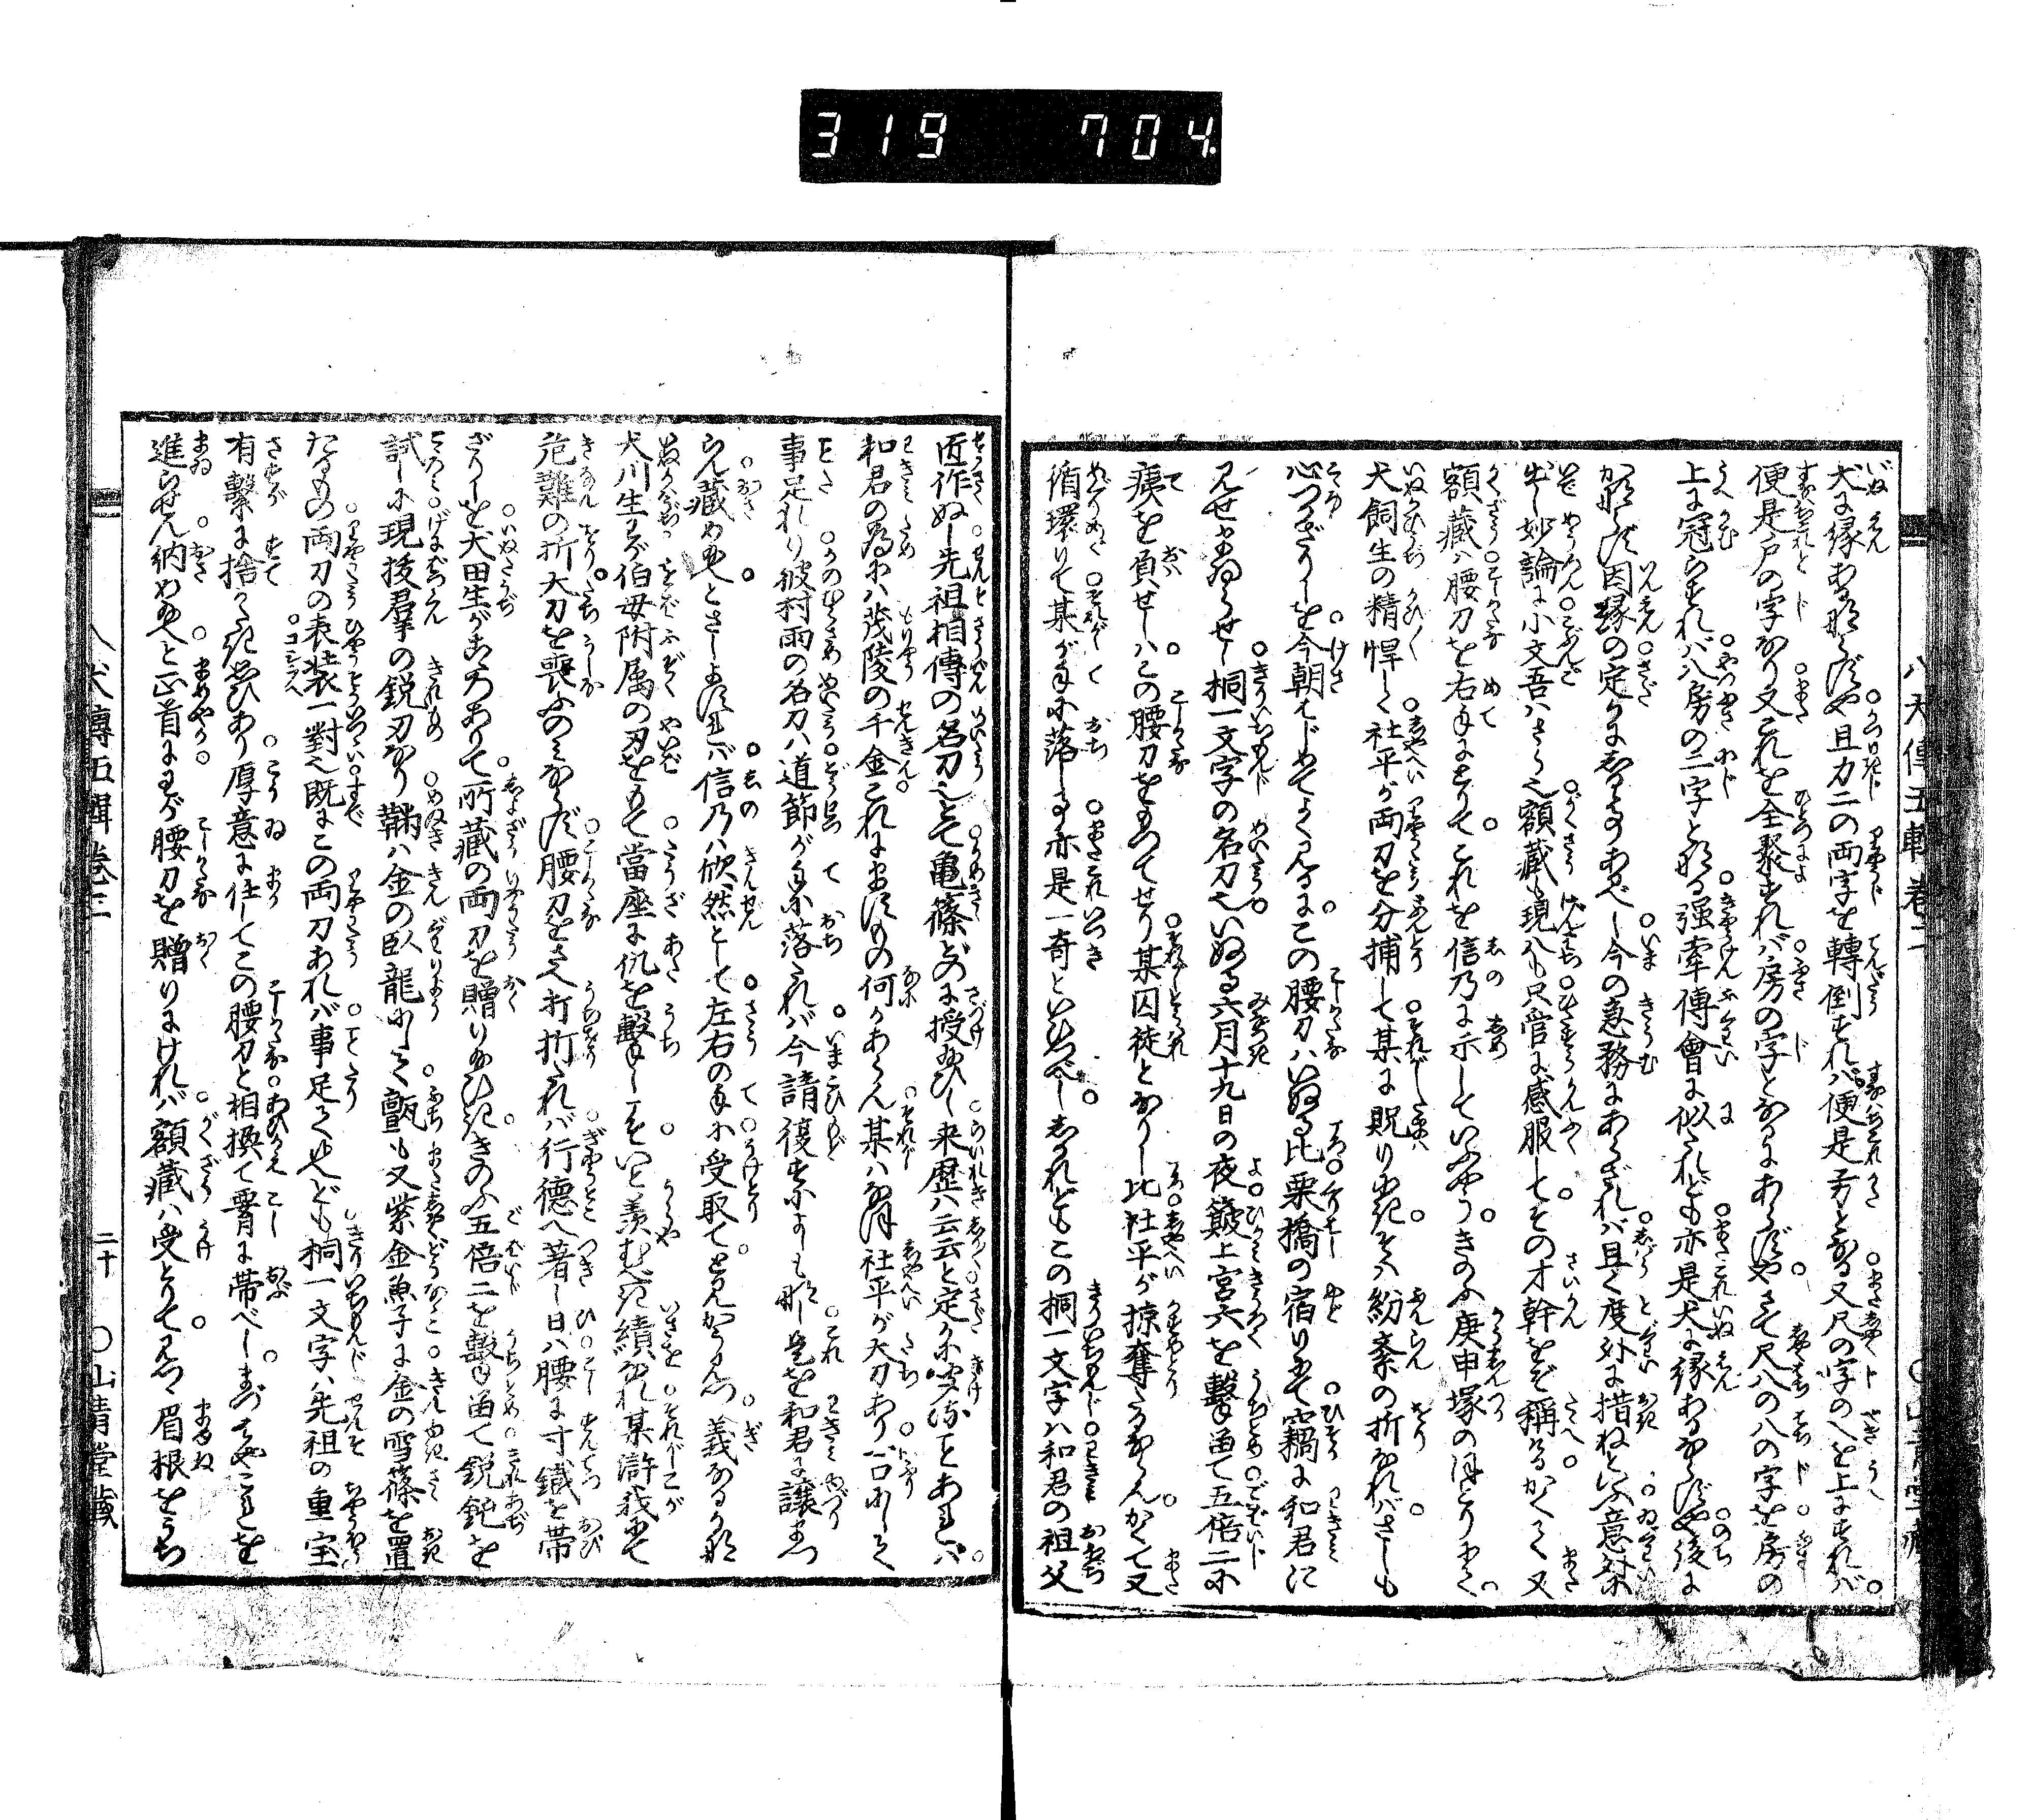 319 704.
八犬傳五輯卷三
犬に縁あるならずや且力二の両字を轉倒すれバ便是 となる又尺の字のへを上にすれバ
便是戸の字なり又これを全聚すれバ房の字となるにあらずやさて尺八の八の字を房の
上に冠らすれバ八房の二字となる強牽傳會に似たれども亦是犬に縁あるならずや後に
因縁の定かにしるゝ事もあるべし今の急務にあらざれバ且く度外に措ねといふ意外に
出し妙論に小文吾ハさら也額藏も現八も只管に感服してその才幹をぞ稱へるかくて又
額藏ハ腰刀を右手にとりてこれを信乃に示していふやうきのふ庚申塚のほとりにて
犬飼生の精悍く社平が両刀を分捕して某に貺りしときハ紛紊の折なれバさしも
心つかざりしを今朝はじめてよく見るにこの腰刀ハいぬる比栗橋の宿りにて竊に和君に
見せまゐらせし桐一文字の名刀也いぬる六月十九日の夜簸上宮六を撃畄て五倍二に
痍を負せしハこの腰刀をもてせり某囚徒となりし比社平が掠奪たるならんかくて又
循環りて某が手に落る事亦是一奇といひつべししかれどもこの桐一文字ハ和君の祖父
匠作ぬし先祖相傳の名刀也とて亀篠どのに授給ひし来歴ハ云云と定かに聞たることあれバ
和君の為にハ茂陵の千金これにますもの何かあらん某ハなほ社平が大刀あり一口にして
事足れり彼村雨の名刀ハ道節が手に落たれバ今請復すによしもなし是を和君に讓まつ
らん藏め給へとさしよすれバ信乃ハ欣然として左右の手に受取てと見かう見つ義なるかな
犬川生わが伯母附属の刃をもて當座に仇を撃しことハいと羨むべき績なれ某滸我にて
危難の折大刀を喪ふのみならず腰刀をさへ打折たれバ行徳へ著し日ハ腰に寸鐵を帯
ざりしを犬田生がこゝろありて所藏の両刀を贈り給ひにききのふ五倍二を撃畄て鋭鈍を
試しに現抜羣の鋭刃なり鞆ハ金の臥龍にして甑も又紫金魚子に金の雪篠を置
たるもの両刀の表装一對也既にこの両刀あれバ事足るといへども桐一文字ハ先祖の重宝
有繋に捨がたき思ひあり厚意に任してこの腰刀と相換て膂に帯べしまづそのこれを
進らせん納め給へと正首にわが腰刀を贈りにけれバ額藏ハ受とりて見つゝ眉根をうち
八犬傳五輯卷三
二十
〇山青堂藏